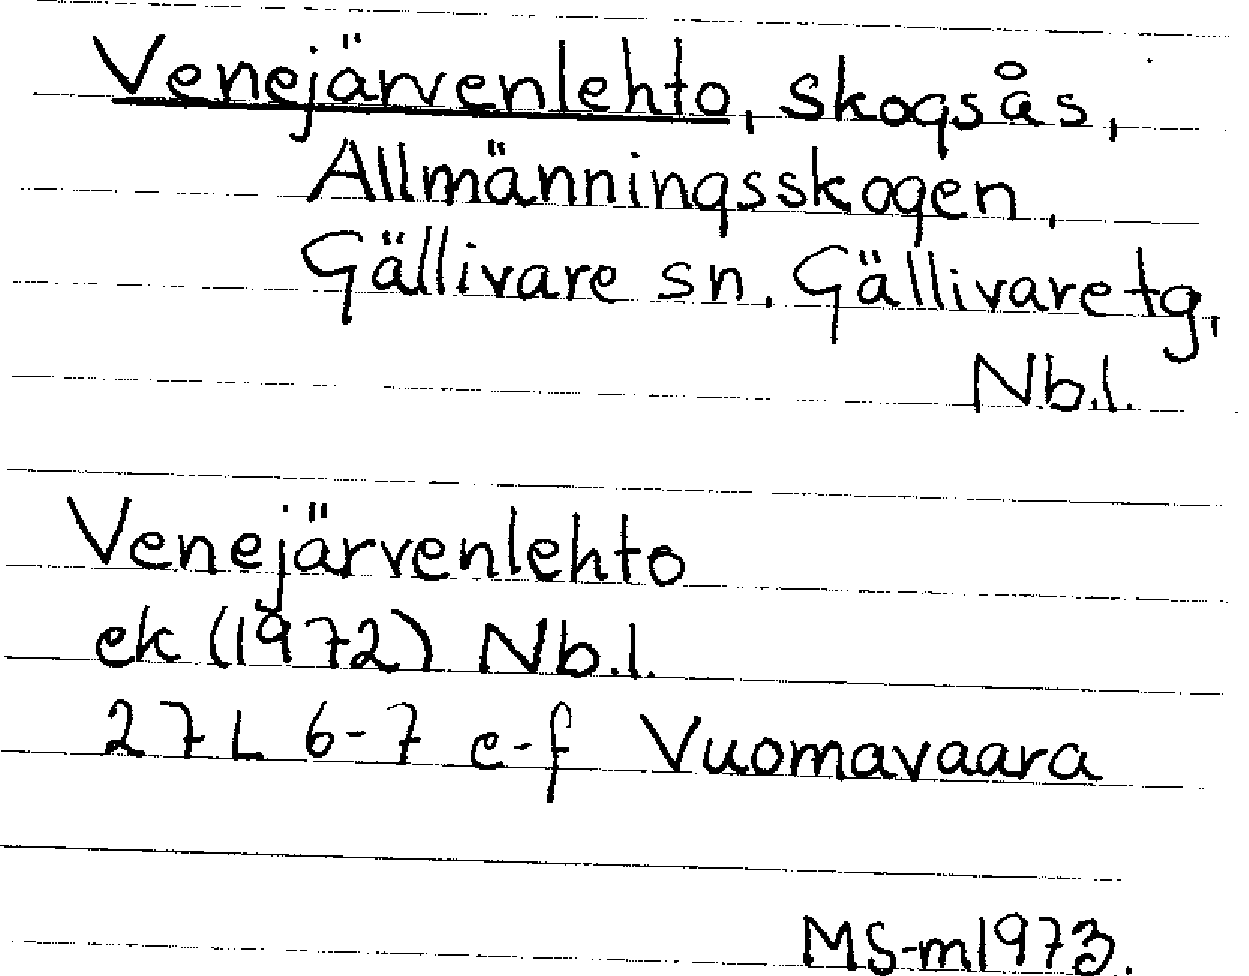 Venejärvenlehto, skogsås,
Allmänningsskogen,
Gällivare sn. Gällivare tg,
Nb.l.
Venejärvenlehto
ek (1972) Nb.l.
27L 6-7 e-f Vuomavaara
MS-m1973.